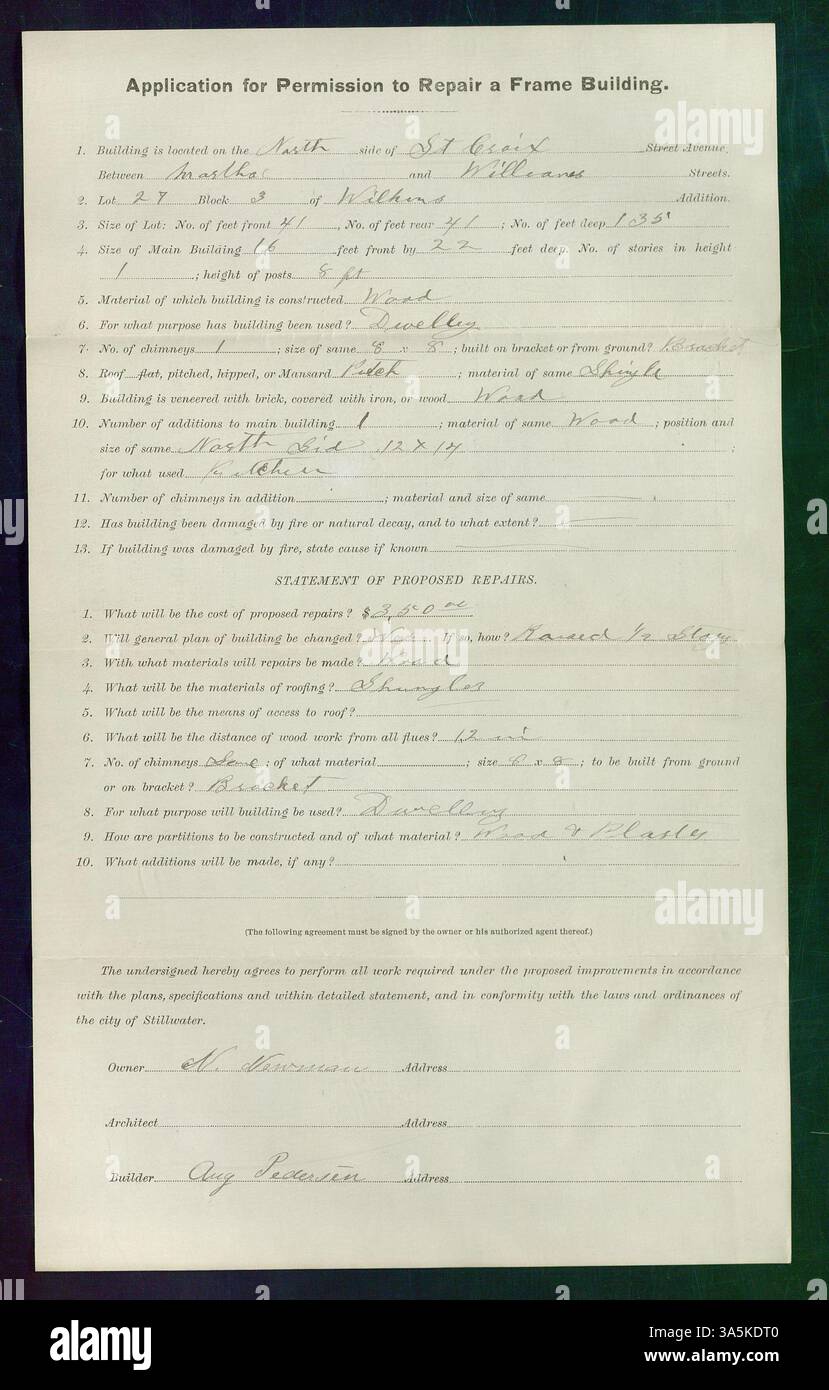 Application for Permission to Repair a Frame Building.
1. Building is located on the North side of St Croix Street Avenue.
Between Martha and Williams Streets.
2. Lot 27 Block 3 of Wilkins Addition.
3. Size of Lot: No. of feet front 41, No. of feet rear 41; No. of feet deep 135
4. Size of Main Building 16 feet front by 22 feet deep. No. of stories in height
1; height of posts 8 ft
5. Material of which building is constructed Wood
6. For what purpose has building been used? Dwelling
7. No. of chimneys 1; size of same 8 x 8; built on bracket or from ground? Bracket
8. Roof flat, pitched, hipped, or Mansard Pitch; material of same Shingle
9. Building is veneered with brick, covered with iron, or wood Wood
10. Number of additions to main building 1; material of same Wood; position and
size of same North Sid 12 x 14;
for what used Kitchen
11. Number of chimneys in addition; material and size of same
12. Has building been damaged by fire or natural decay, and to what extent?
13. If building was damaged by fire, state cause if known
STATEMENT OF PROPOSED REPAIRS.
1. What will be the cost of proposed repairs? $350 00
2. Will general plan of building be changed? If so, how? Raised 1/2 Story
3. With what materials will repairs be made? Wood
4. What will be the materials of roofing? Shingles
5. What will be the means of access to roof?
6. What will be the distance of wood work from all flues? 12 in
7. No. of chimneys; of what material; size 8 x 8; to be built from ground
or on bracket? Bracket
8. For what purpose will building be used? Dwelling
9. How are partitions to be constructed and of what material? Wood & Plaster
10. What additions will be made, if any?
(The following agreement must be signed by the owner or his authorized agent thereof.)
The undersigned hereby agrees to perform all work required under the proposed improvements in accordance
with the plans, specifications and within detailed statement, and in conformity with the laws and ordinances of
the city of Stillwater.
Owner N. Newman Address
Architect Address
Builder Aug Pedersen Address
alamy
Image ID: 3A5KDT0
www.alamy.com